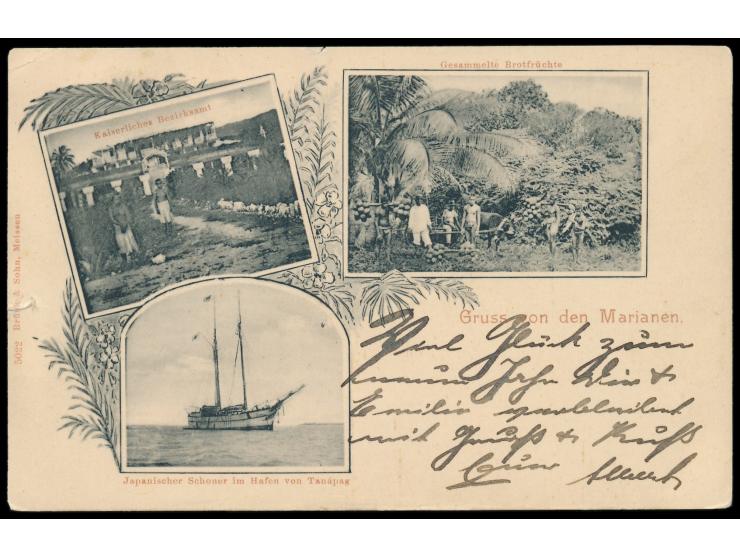 Gesammelte Brotfrüchte
Kaiserliches Bezirksamt
5022 Brück & Sohn, Meissen
Gruss von den Marianen.
Viel Glück zum
neuen Jahr Dir &
Emilie
mit Gruß & Kuß
Euer Albert
Japanischer Schoner im Hafen von Tanápag